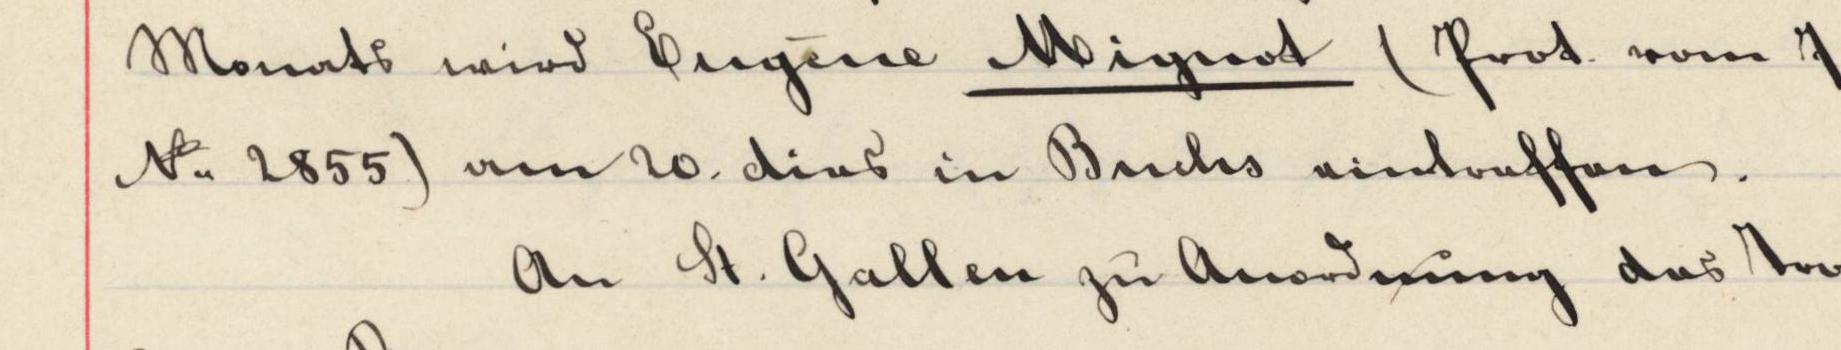 Monats wird Eugène Mignot (Prot. vom
No. 2855) am 20. dies in Buchs eintreffen.
An St. Gallen zu Anordnung des